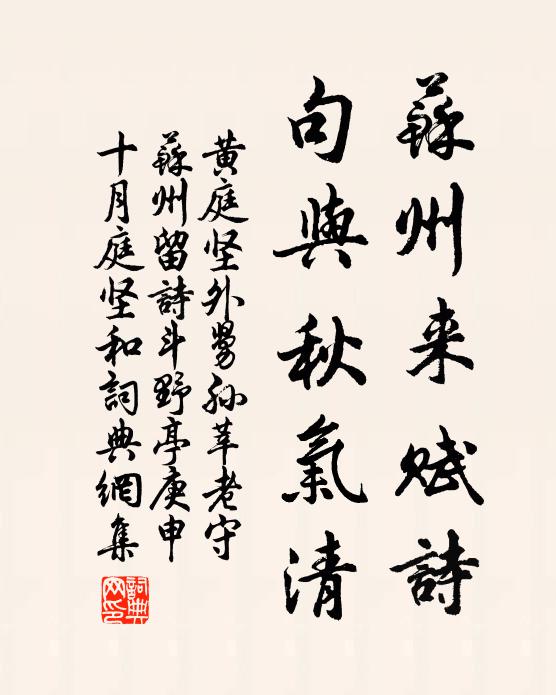 蘇州来赋詩
句與秋氣清
黄庭坚外舅孙莘老守
蘇州留詩斗野亭庚申
十月庭坚和詞典網集
詞典網印